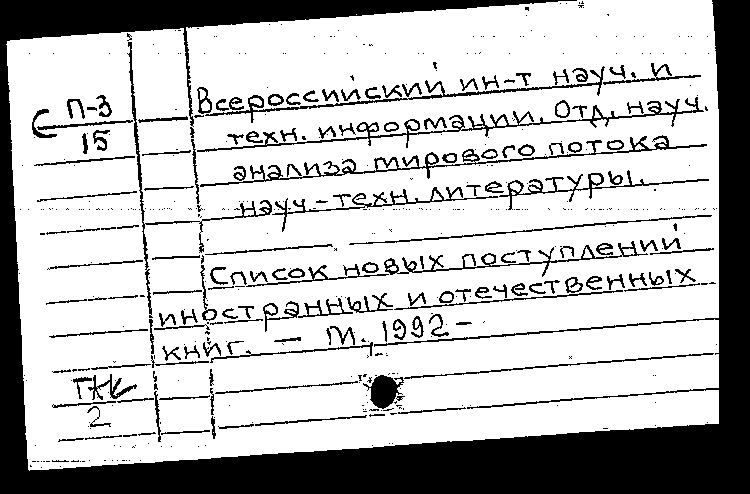 С П-3
15
Всероссийский ин-т науч. и
техн. информации. Отд. науч.
анализа мирового потока
науч.-техн. литературы.
Список новых поступлений
иностранных и отечественных
книг. — М., 1992-
2